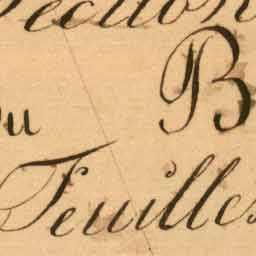 Section
du B
Feuilles